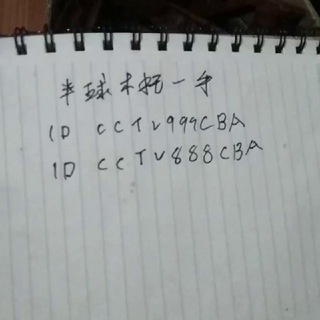 半球木托一手
ID CCTV999CBA
ID CCTV888CBA